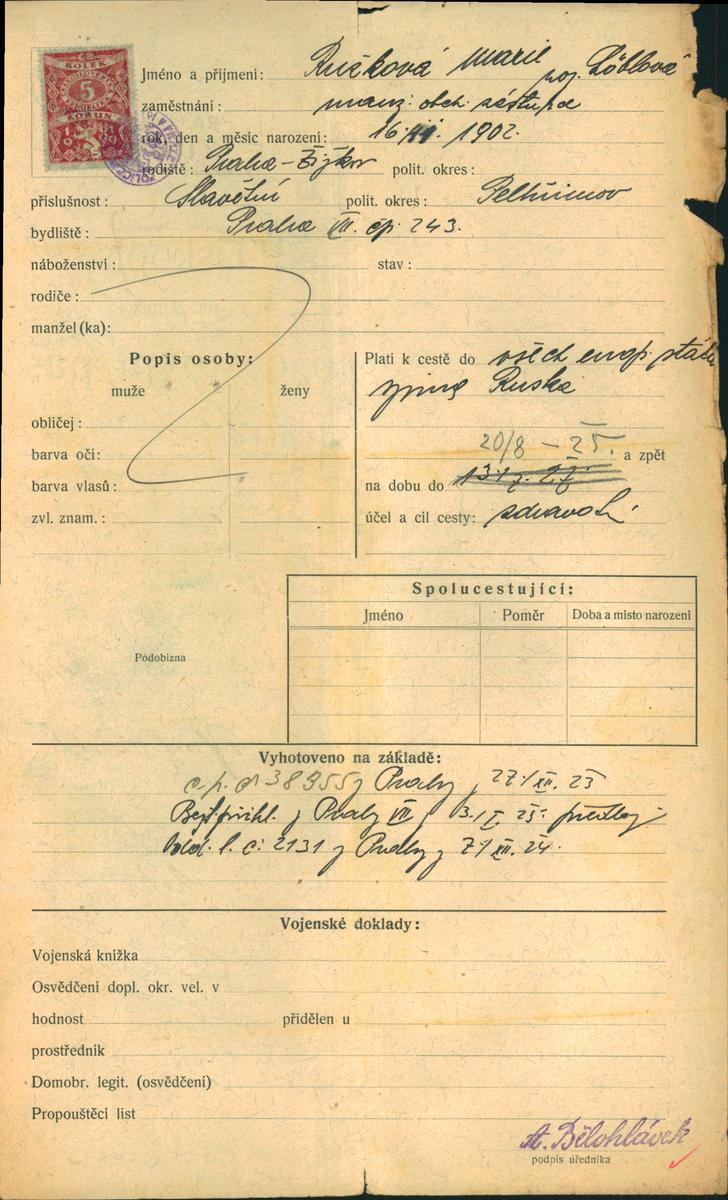 KOLEK
5
KORUN
1919
Jméno a příjmení: Růžková Marie roz. Löblová
zaměstnání: manž. obch. zástupce
rok, den a měsíc narození: 16. 1902.
rodiště: Praha-Žižkov polit. okres:
příslušnost: Slavětín polit. okres: Pelhřimov
bydliště: Praha VII. čp. 243.
náboženství: stav:
rodiče:
manžel(ka):
Popis osoby:
muže ženy
obličej:
barva očí:
barva vlasů:
zvl. znam.:
Platí k cestě do všech evrop. států
vyjma Ruska
20/8 – 25. a zpět
na dobu do
účel a cíl cesty: zdravotní
Spolucestující:
Jméno Poměr Doba a místo narození
Podobizna
Vyhotoveno na základě:
c.p. č 38955 z Prahy z 27/XII. 23
z Prahy VII z 3./I. 25.
l. č. 2131 z Prahy z 7/XII. 24.
Vojenské doklady:
Vojenská knížka
Osvědčení dopl. okr. vel. v
hodnost přidělen u
prostředník
Domobr. legit. (osvědčení)
Propouštěcí list
A. Bělohlávek
podpis úředníka